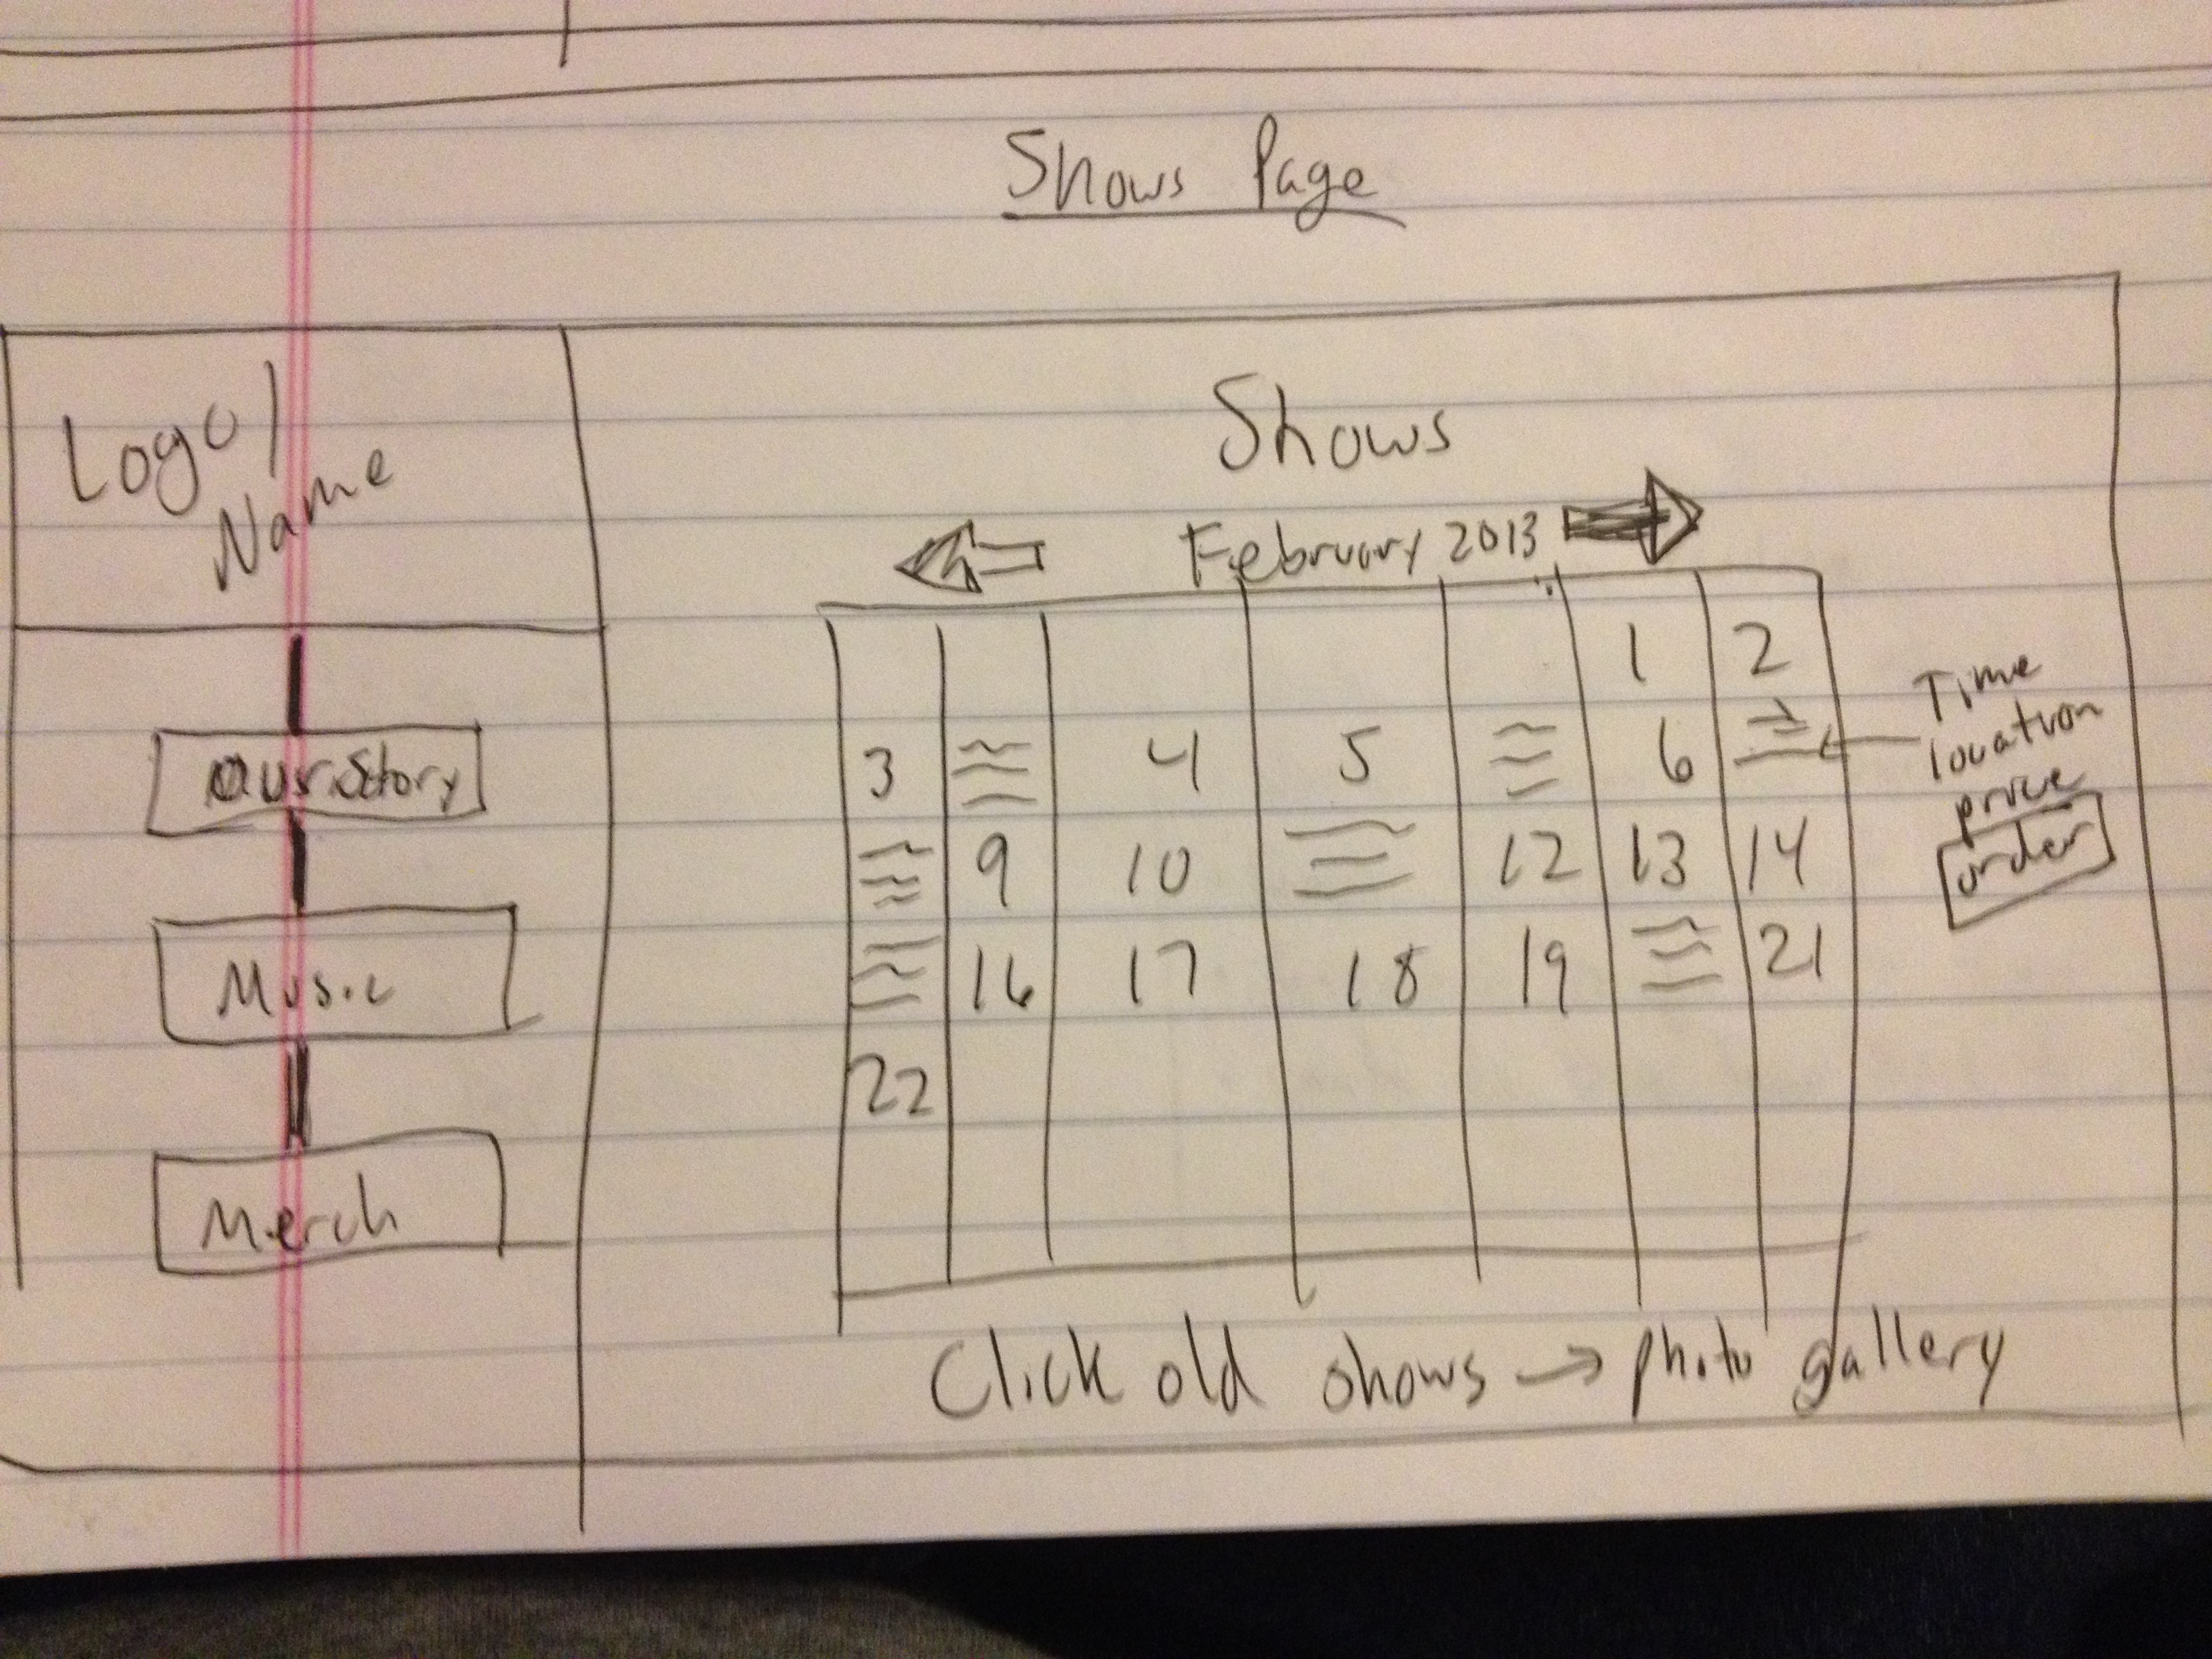 Shows Page
Logo/
Name
Our Story
Music
Merch
Shows
February 2013
1 2
3 4 5 6
9 10 12 13 14
16 17 18 19 21
22
Time
location
price
order
Click old shows → photo gallery